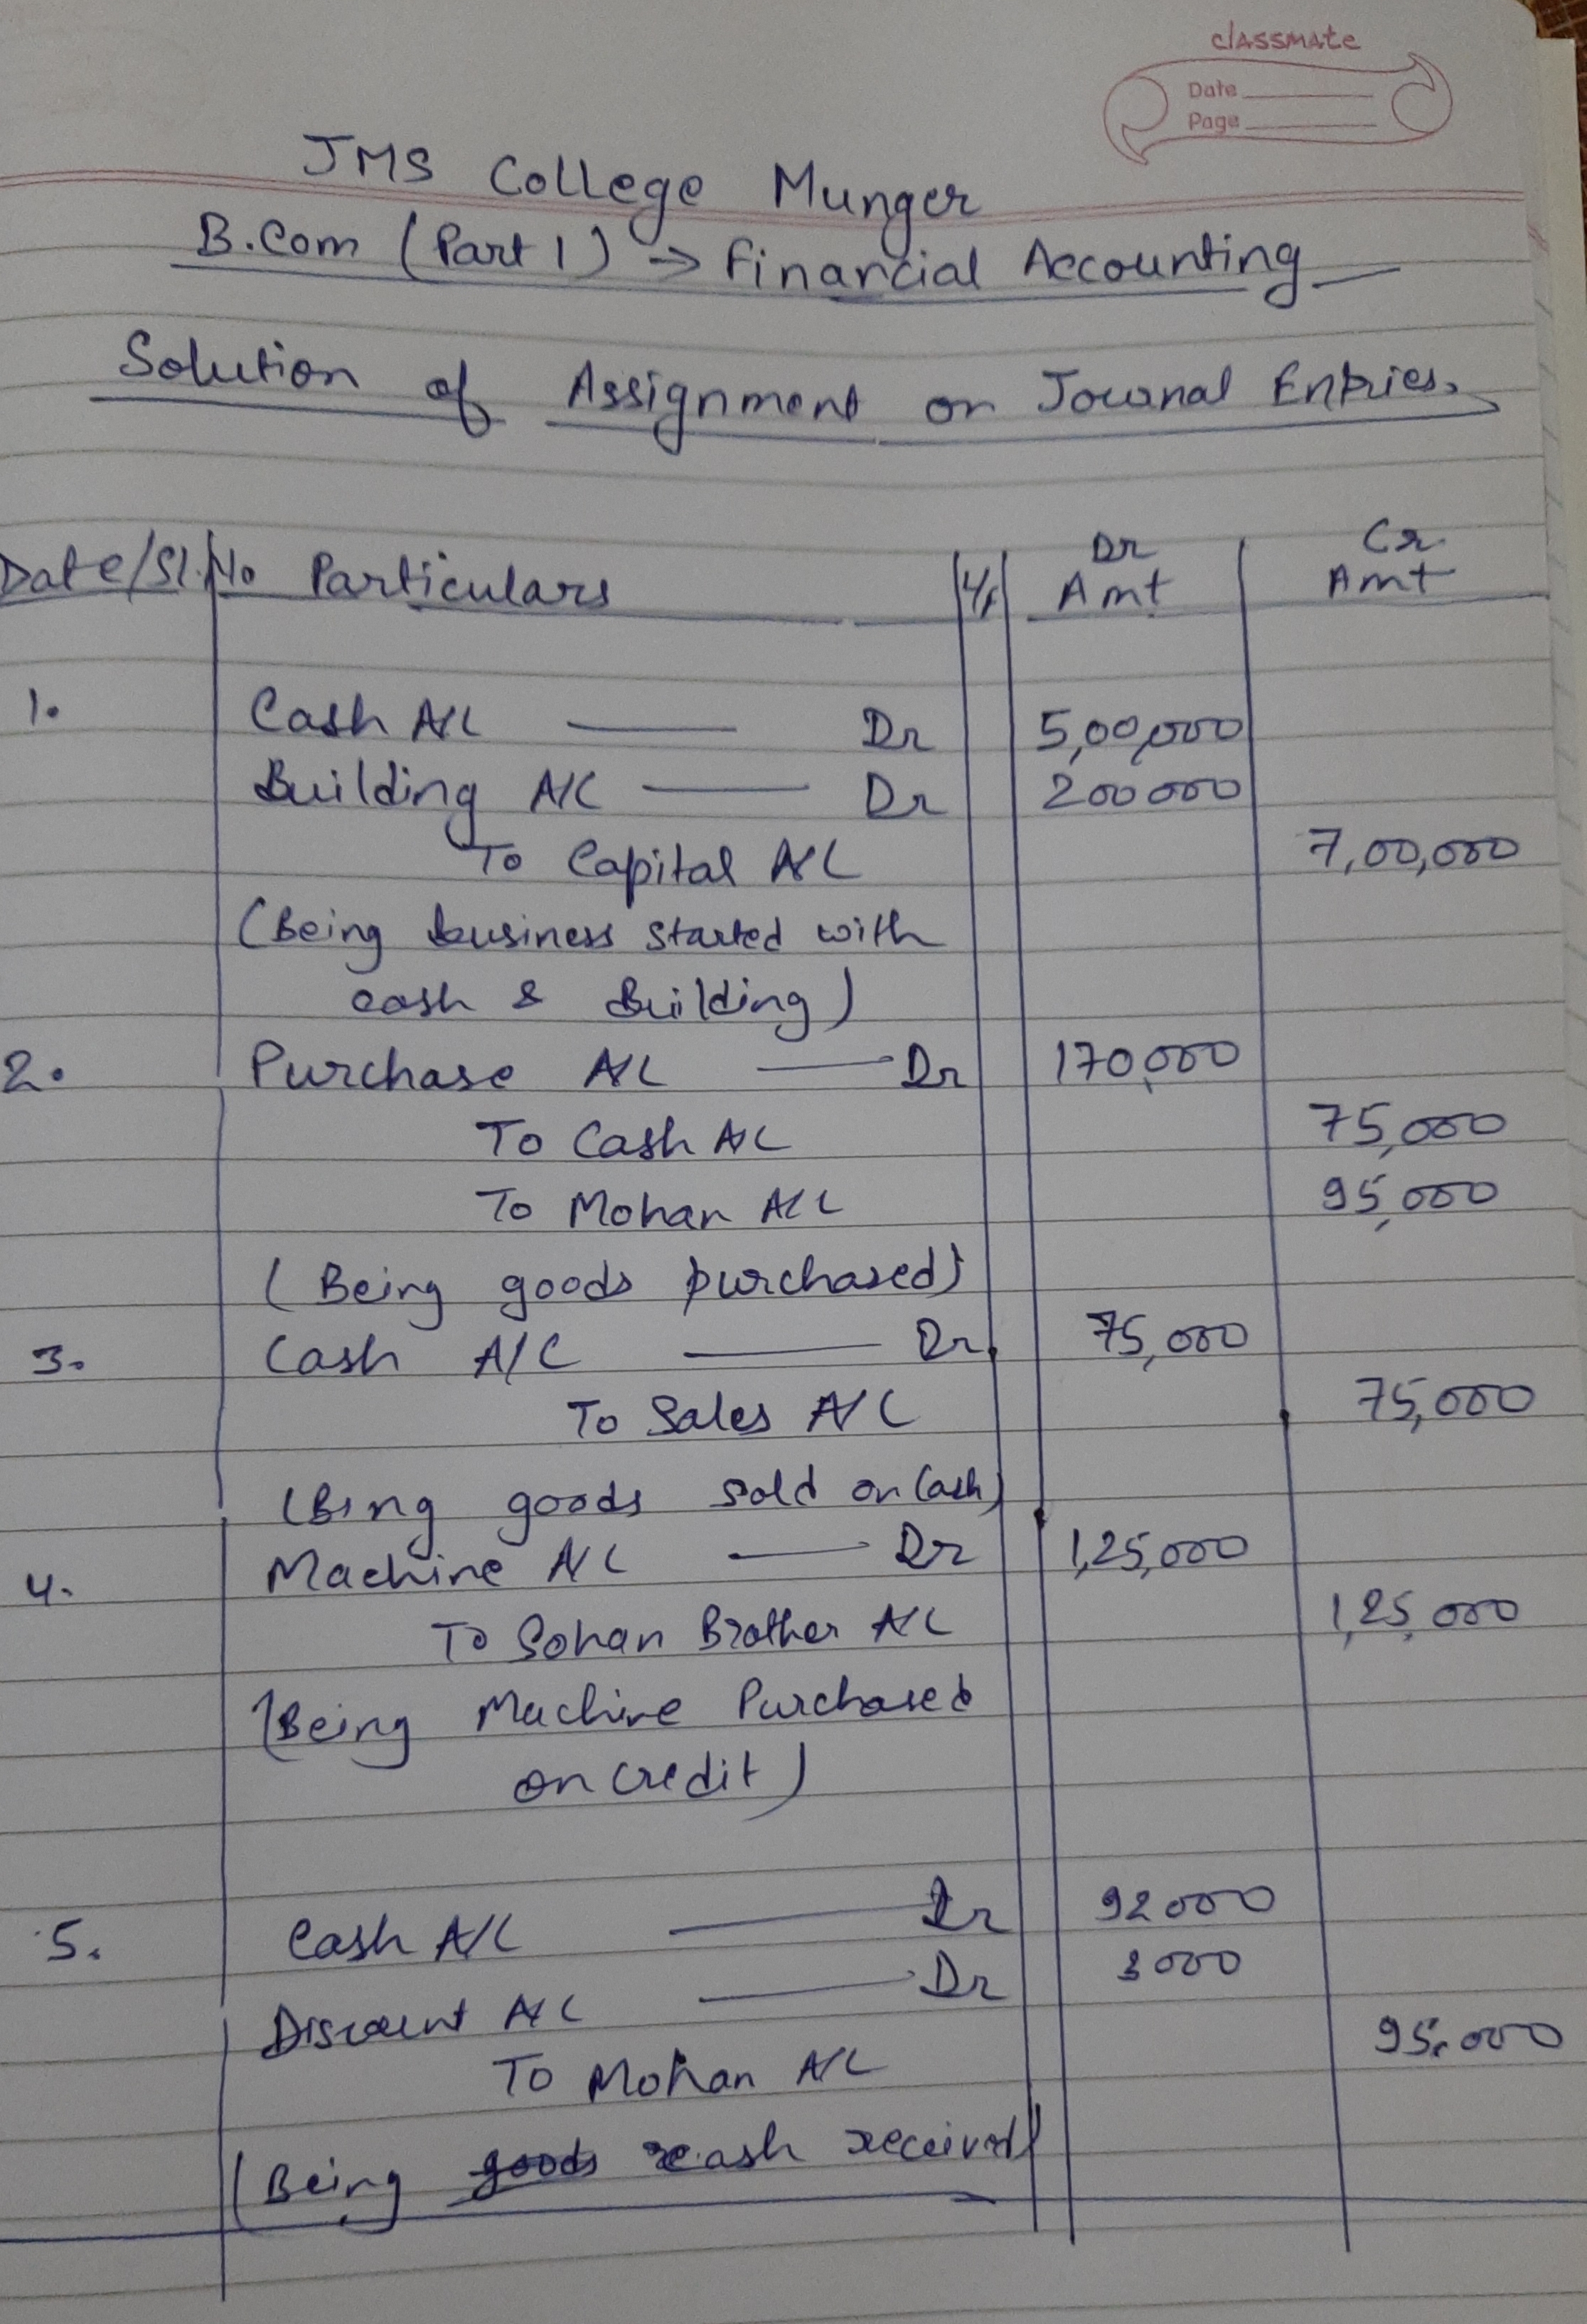 classmate
Date
Page
JMS College Munger
B.Com (Part 1) → Financial Accounting
Solution of Assignment on Journal Entries.
Date/Sl.No Particulars L/F Dr Amt Cr. Amt
1. Cash A/C — Dr 5,00,000
Building A/C — Dr 200000
To Capital A/C 7,00,000
(Being business started with
cash & Building)
2. Purchase A/C — Dr 170,000
To Cash A/C 75,000
To Mohan A/C 95,000
(Being goods purchased)
3. Cash A/C — Dr. 75,000
To Sales A/C 75,000
(Bing goods sold on Cash)
4. Machine A/C — Dr 1,25,000
To Sohan Brother A/C 1,25,000
(Being Machine Purchased
on credit)
5. Cash A/C — Dr 92000
Discount A/C — Dr 3000
To Mohan A/C 95,000
(Being goods cash received)